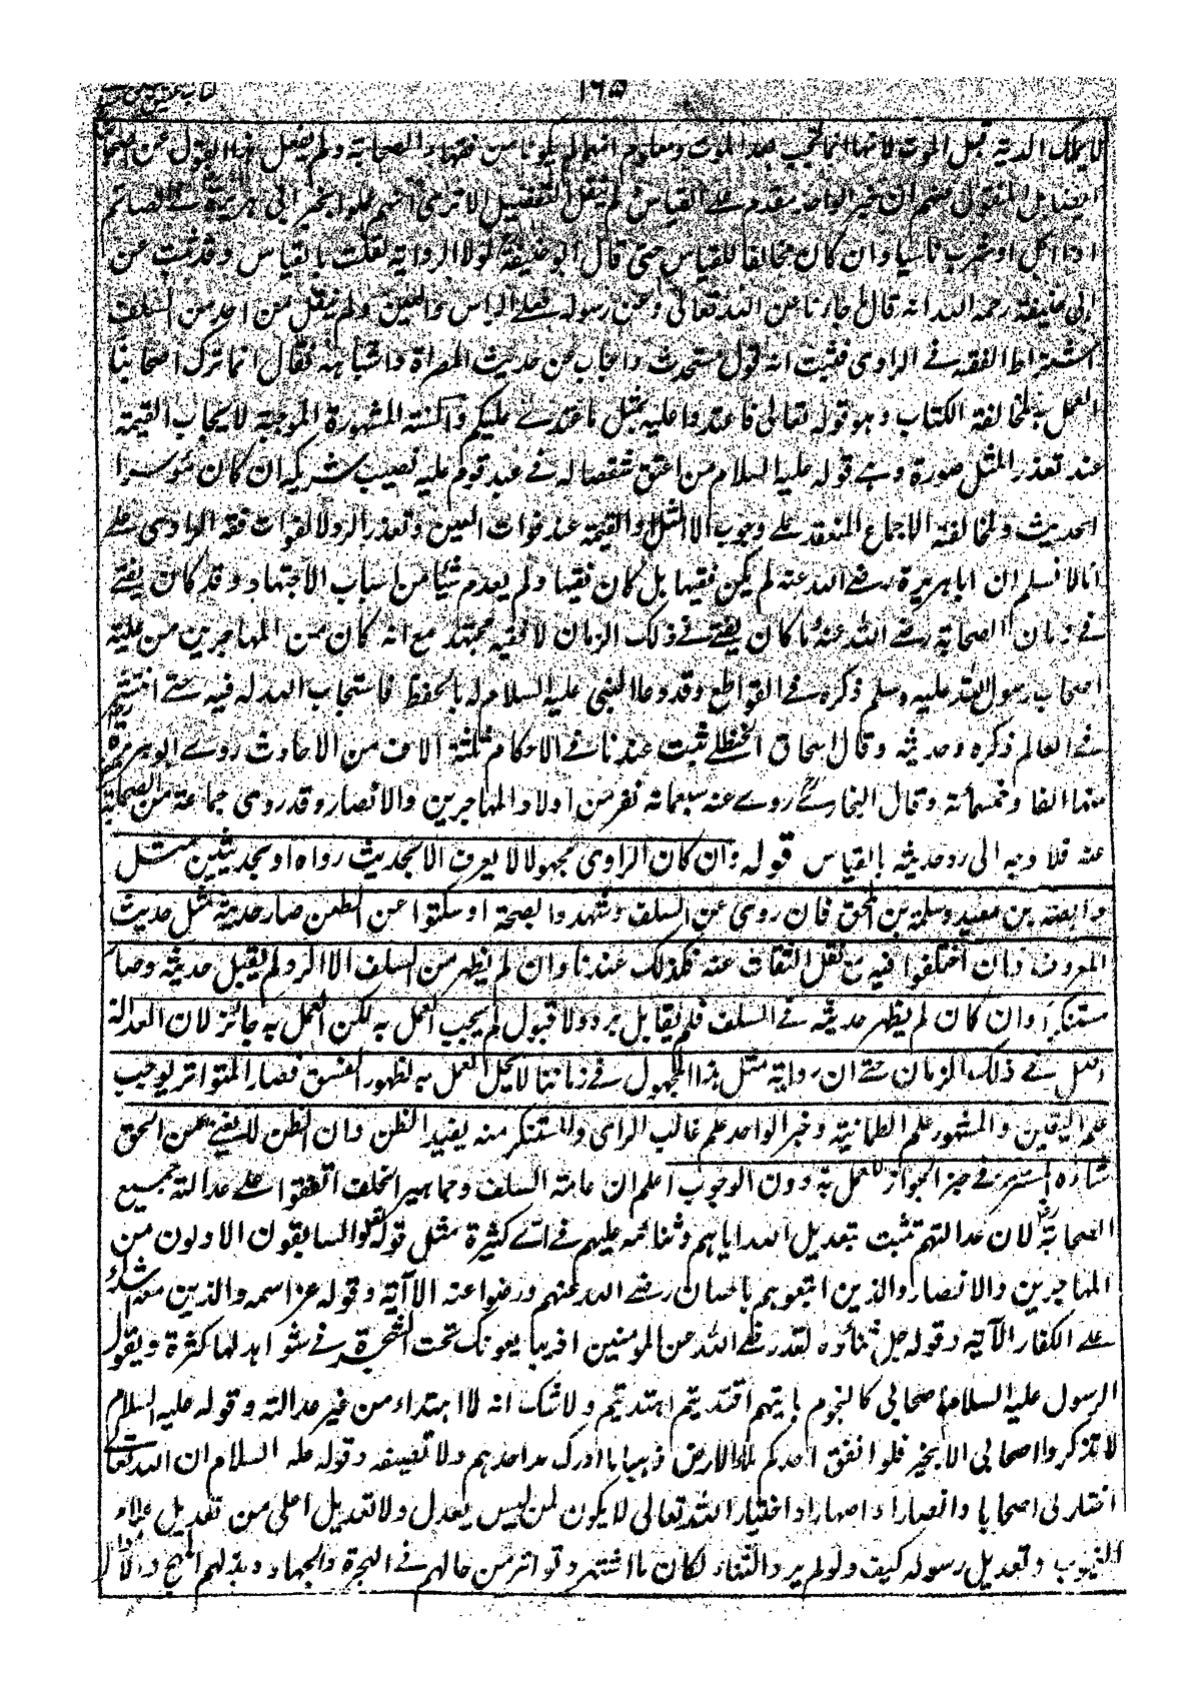 ١٦٥
كتاب تحقيق
لا يملك الدية قبل الموت لانها انما تجب بعد الموت ومعلوم انهما لم يكونا من فقهاء الصحابة ولم ينقل هذا القول عن اصحابنا
ايضا بل المنقول عنهم ان خبر الواحد مقدم على القياس ولم ينقل التفصيل الا ترى انهم عملوا بخبر ابى هريرة فى الصائم
اذا اكل او شرب ناسيا وان كان مخالفا للقياس حتى قال ابو حنيفة لولا الرواية لقلت بالقياس وقد ثبت عن
ابى حنيفة رحمه الله انه قال ما جاءنا عن الله تعالى وعن رسوله فعلى الراس والعين ولم ينقل من احد من السلف
اشتراط الفقه فى الراوى فثبت انه قول مستحدث واجاب عن حديث المصراة واشباهه فقال انما ترك اصحابنا
العمل به لمخالفة الكتاب وهو قوله تعالى فاعتدوا عليه بمثل ما اعتدى عليكم والسنة المشهورة الموجبة لايجاب القيمة
عند تعذر المثل صورة وهى قوله عليه السلام من اعتق شقصا له فى عبد قوم عليه نصيب شريكه ان كان موسرا
الحديث ولمخالفة الاجماع المنعقد على وجوب المثل او القيمة عند فوات العين وتعذر الرد لا لفوات فقه الراوى على
انا لا نسلم ان ابا هريرة رضى الله عنه لم يكن فقيها بل كان فقيها ولم يعدم شيئا من اسباب الاجتهاد وقد كان يفتى
فى زمان الصحابة رضى الله عنهم وما كان يفتى فى ذلك الزمان الا فقيه مجتهد مع انه كان من المهاجرين من علية
اصحاب رسول الله عليه وسلم ذكره فى القواطع وقد دعا النبى عليه السلام له بالحفظ فاستجاب الله له فيه حتى انتشر
فى العالم ذكره وحديثه وقال اسحاق الحنظلى ثبت عندنا فى الاحكام ثلثة آلاف من الاحاديث روى ابو هريرة
منها الفا وخمسمائة وقال البخارى روى عنه سبعمائة نفر من اولاد المهاجرين والانصار وقد روى جماعة من الصحابة
عنه فلا وجه الى رد حديثه بالقياس قوله وان كان الراوى مجهولا لا يعرف الا بحديث رواه او بحديثين مثل
وابصة بن معبد وسلمة بن المحبق فان روى عن السلف وشهدوا بالصحة او سكتوا عن الطعن صار حديثه مثل حديث
المعروف وان اختلفوا فيه مع نقل الثقات عنه فكذلك عندنا وان لم يظهر من السلف الا الرد لم يقبل حديثه وصار
مستنكرا وان كان لم يظهر حديثه فى السلف فلم يقابل برد ولا قبول لم يجب العمل به لكن العمل به جائز لان العدالة
اصل فى ذلك الزمان حتى ان رواية مثل هذا المجهول فى زماننا لا يحل العمل به لظهور الفسق فصار المتواتر يوجب
علم اليقين والمشهور علم الطمانية وخبر الواحد علم غالب الراى والمستنكر منه يفيد الظن وان الظن لا يغنى من الحق
شيئا والمستتر فى حيز الجواز للعمل به دون الوجوب اعلم ان عامة السلف وجماهير الخلف اتفقوا على عدالة جميع
الصحابة لان عدالتهم تثبت بتعديل الله اياهم وثنائه عليهم فى آى كثيرة مثل قوله تعالى والسابقون الاولون من
المهاجرين والانصار والذين اتبعوهم باحسان رضى الله عنهم ورضوا عنه الآية وقوله عز اسمه والذين معه اشداء
على الكفار الآية وقوله جل ثناؤه لقد رضى الله عن المومنين اذ يبايعونك تحت الشجرة فى شواهد لها كثرة وبقول
الرسول عليه السلام اصحابى كالنجوم بايهم اقتديتم اهتديتم ولا شك انه لا اهتداء من غير عدالة وقوله عليه السلام
لا تذكروا اصحابى الا بخير فلو انفق احدكم ملأ الارض ذهبا ما ادرك مد احدهم ولا نصيفه وقوله عليه السلام ان الله تعالى
اختار لى اصحابا وانصارا واصهارا واختيار الله تعالى لا يكون لمن ليس بعدل ولا تعديل اعلى من تعديل علام
الغيوب وتعديل رسوله كيف ولو لم يرد الثناء لكان ما اشتهر وتواتر من حالهم فى الهجرة والجهاد وبذلهم المهج والاموال